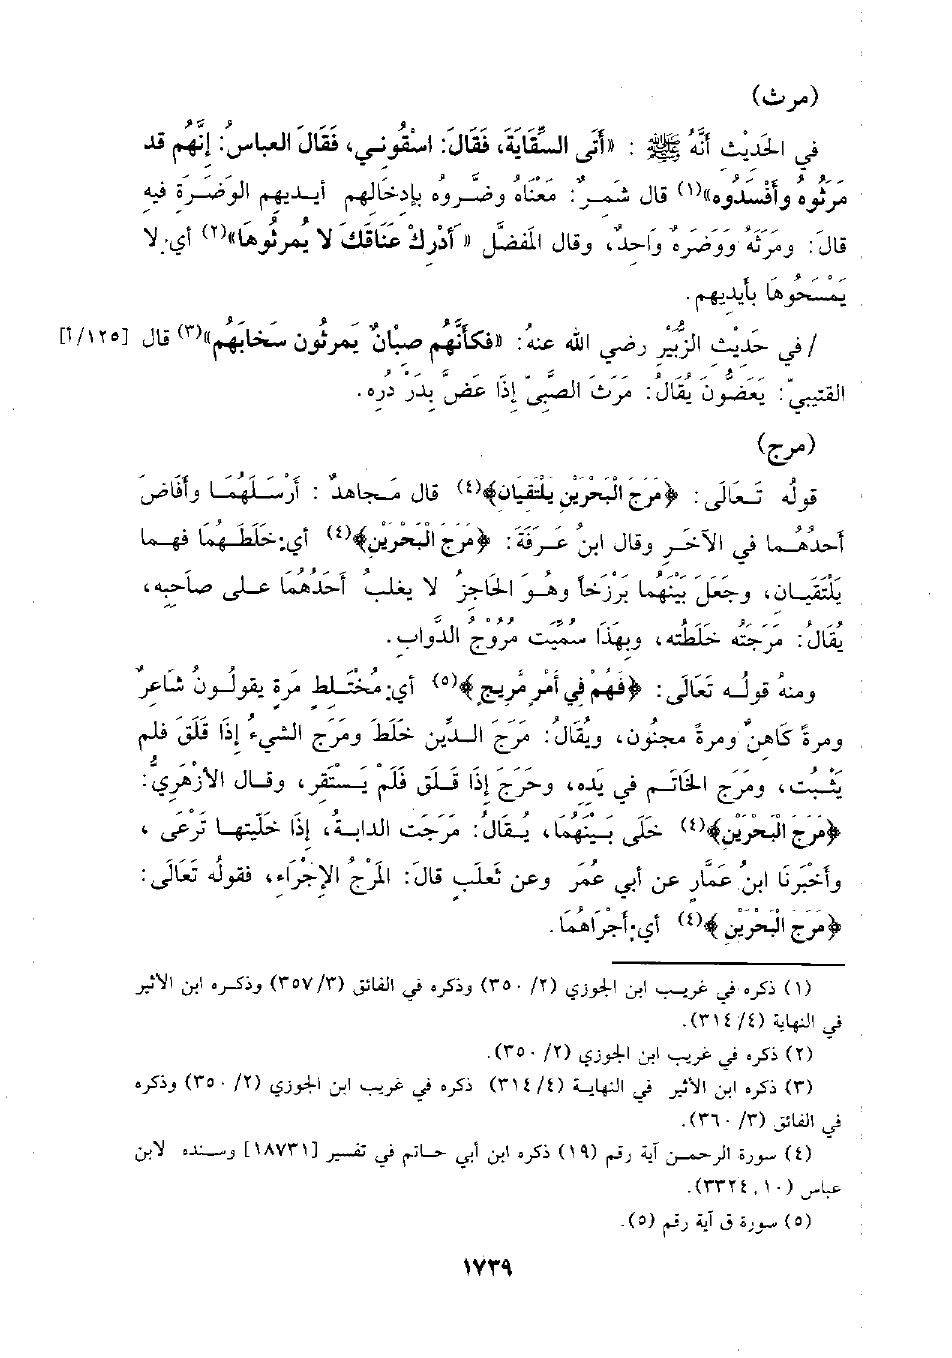 (مرث)
في الحَديْث أنَّهُ ﷺ : «أَتَى السِّقَايَةَ، فَقَالَ: اسْقُوني، فَقَالَ العباسُ: إنَّهُم قد
مَرَثُوهُ وأفْسَدُوه»(١) قال شمرٌ: مَعْنَاهُ وضَّروهُ بإدخالهم أيديهم الوَضَرَةَ فيه
قالَ: ومَرَثَهُ وَوضَرَهُ وَاحدٌ، وقال المَفضلُ «أَدْركْ عَنَاقَكَ لا يُمرثُوهَا»(٢) أي: لا
يَمْسَحُوهَا بأيديهم.
/ في حَديْث الزبُيْر رضي الله عنهُ: «فكأنَّهُم صبْيَانٌ يَمرثُون سَخابَهُم»(٣) قال [١٢٥/أ]
القتيبيّ: يَعَضُّونَ يُقَالُ: مَرَثَ الصَّبيّ إذَا عَضَّ بدَرْدُره.
(مرج)
قولُه تَعَالَى: ﴿مَرَجَ الْبَحْرَيْنِ يَلْتَقِيَان﴾(٤) قال مَجاهدٌ : أرْسَلَهُمَا وأفَاضَ
أحدُهُما في الآخَر وقال ابنُ عَرفَةَ: ﴿مَرَجَ الْبَحْرَيْنِ﴾(٤) أي:خَلَطَهُمَا فهما
يَلْتَقيَان، وجَعَلَ بَيْنَهُما بَرْزَخاً وهُوَ الحَاجزُ لا يغلبُ أحَدُهُمَا على صَاحبه،
يُقَالُ: مَرَجْتَه خَلَطتُه، وبهَذَا سُمِّيَت مُرُوْجُ الدَّواب.
ومنهُ قولُه تَعَالَى: ﴿فَهُمْ فِي أَمْرٍ مَّرِيجٍ﴾(٥) أي:مُخْتَلطٍ مَرةٍ يقولُونُ شَاعرٌ
ومرةً كَاهنٌ ومرةً مجنُون، ويُقَالُ: مَرَجَ الدَّين خلَطَ ومَرَج الشيءُ إذَا قَلَقَ فلم
يَثْبُت، ومَرَج الخَاتَم في يَده، وحَرَجَ إذَا قَلَق فَلَمْ يَسْتَقر، وقال الأزْهَريُّ:
﴿مَرَجَ الْبَحْرَيْنِ﴾(٤) خَلَى بَيْنَهُمَا، يُقَالُ: مَرَجَت الدابةُ، إذَا خَلَّيتها تَرْعَى ،
وأخْبَرنَا ابنُ عَمَّارٍ عن أبي عُمَر وعن ثَعلَبٍ قالَ: المَرْجُ الإجْرَاء، فقولُه تَعَالَى:
﴿مَرَجَ الْبَحْرَيْنِ﴾(٤) أي:أجْرَاهُمَا.
(١) ذكره في غريب ابن الجوزي (٢/ ٣٥٠) وذكره في الفائق (٣/ ٣٥٧) وذكره ابن الأثير
في النهاية (٤/ ٣١٤).
(٢) ذكره في غريب ابن الجوزي (٢/ ٣٥٠).
(٣) ذكره ابن الأثير في النهاية (٤/ ٣١٤) ذكره في غريب ابن الجوزي (٢/ ٣٥٠) وذكره
في الفائق (٣/ ٣٦٠).
(٤) سورة الرحمن آية رقم (١٩) ذكره ابن أبي حاتم في تفسير [١٨٧٣١] وسنده لابن
عباس (١٠, ٣٣٢٤).
(٥) سورة ق آية رقم (٥).
١٧٣٩